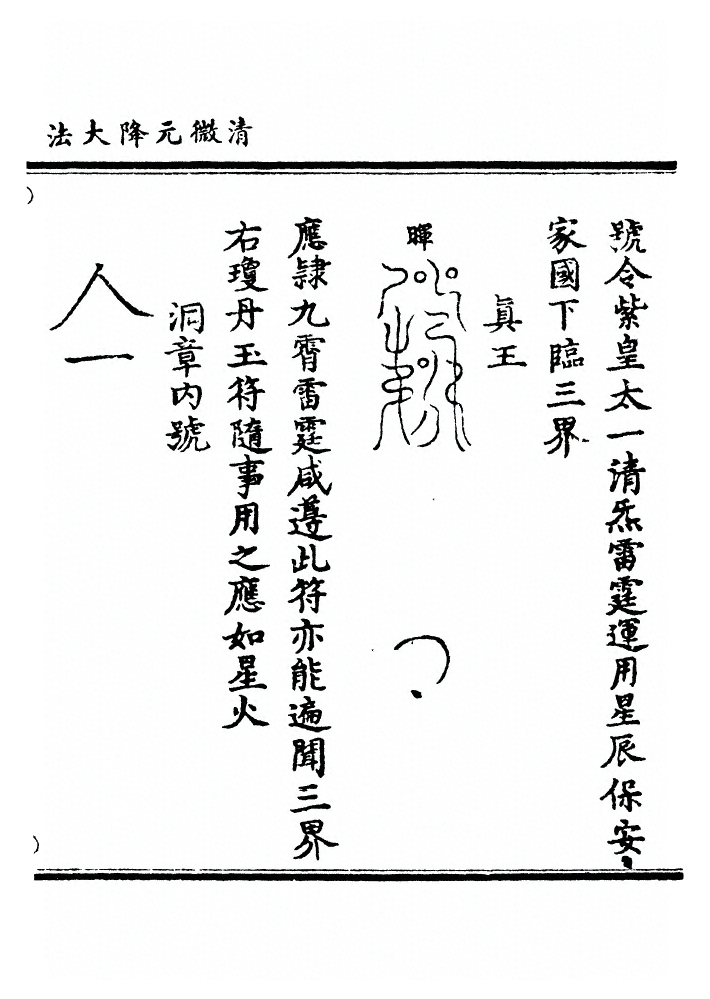 清微元降大法
號令紫皇太一清炁雷霆運用星辰保安
家國下臨三界
真王
暉
應隸九霄雷霆咸遵此符亦能遍聞三界
右瓊丹玉符隨事用之應如星火
洞章内號